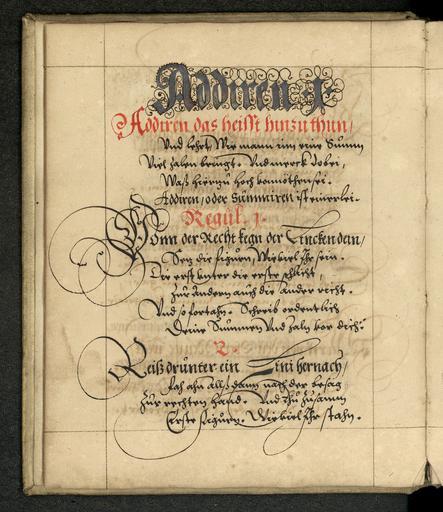 Addiren 1.
Addiren das heisst hinzu thun/
Und lehrt, Wie mann inn eine Summ
Viel zalen bringt. Und merck dobei,
Waß hierzu hoch vonnöthen sei.
Addiren/ oder Summiren ist einerlei.
Regul. 1.
Vonn der Recht kegn der Lincken dein/
Setz die figurn, Wieviel Ihr sein.
Die erst unter die erste schlicht,
Zur Andern auch die Ander richt.
Und so fortahn. Schreib ordentlich
Deine Summen Und zaln vor dich.
2.
Reiß drunter ein Lini hernach/
Fah ahn alß dann nach der besag
Zur rechten hand. Und thu zusamm
Erste figurn. Wieviel Ihr stahn.